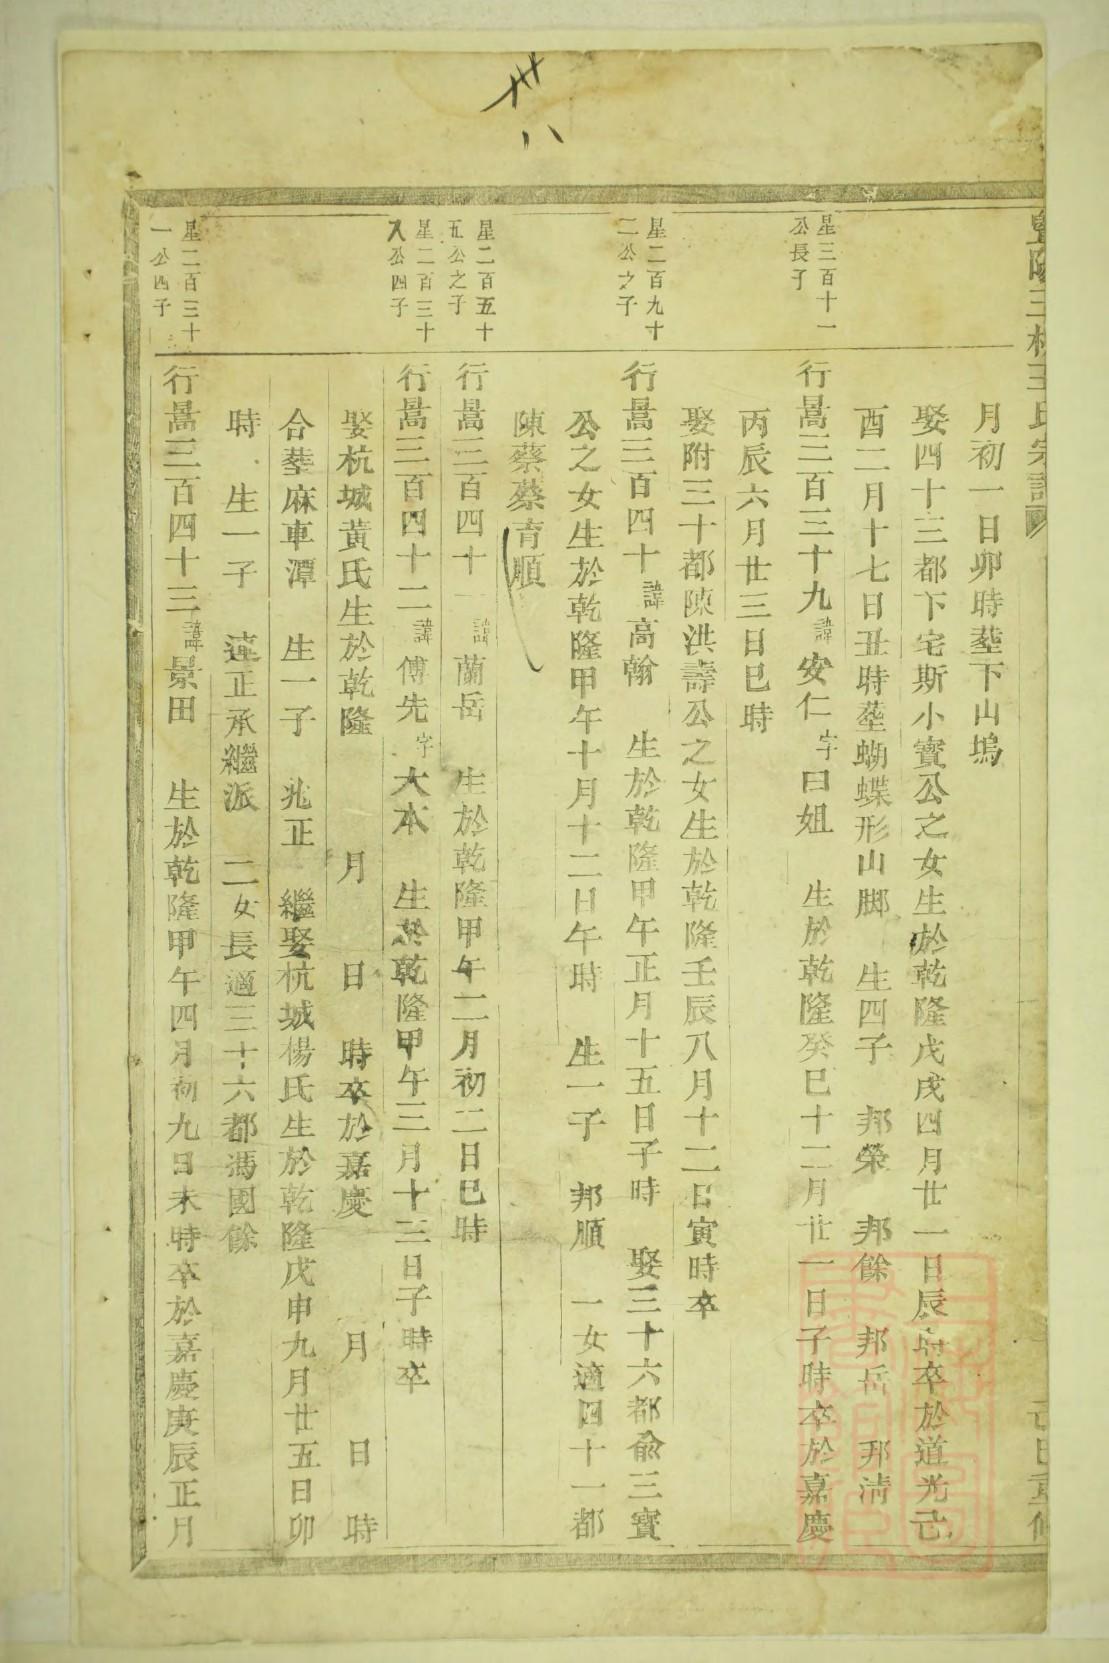 廿八
月初一日卯時塟下山塢
娶四十三都下宅斯小寳公之女生於乾隆戊戌四月廿一日辰時卒於道光己
酉二月十七日丑時塟蝴蝶形山脚 生四子 邦榮 邦餘 邦岳 邦淸
星三百十一
公長子
行暠三百三十九諱安仁字曰姐 生於乾隆癸巳十二月廿一日子時卒於嘉慶
丙辰六月廿三日巳時
娶附三十都陳洪壽公之女生於乾隆壬辰八月十二日寅時卒
星二百九十
二公之子
行暠三百四十諱高翰 生於乾隆甲午正月十五日子時 娶三十六都俞三寳
公之女生於乾隆甲午十月十二日午時 生一子 邦順 一女適四十一都
陳蔡蔡育順
星二百五十
五公之子
行暠三百四十一諱蘭岳 生於乾隆甲午二月初二日巳時
星二百三十
公四子
行暠三百四十二諱傅先字大本 生於乾隆甲午三月十三日子時卒
娶杭城黃氏生於乾隆 月 日 時卒於嘉慶 月 日 時
合塟麻車潭 生一子 兆正 繼娶杭城楊氏生於乾隆戊申九月廿五日卯
時 生一子 蓮正承繼派 二女長適三十六都馮國餘
星二百三十
一公四子
行暠三百四十三諱景田 生於乾隆甲午四月初九日未時卒於嘉慶庚辰正月